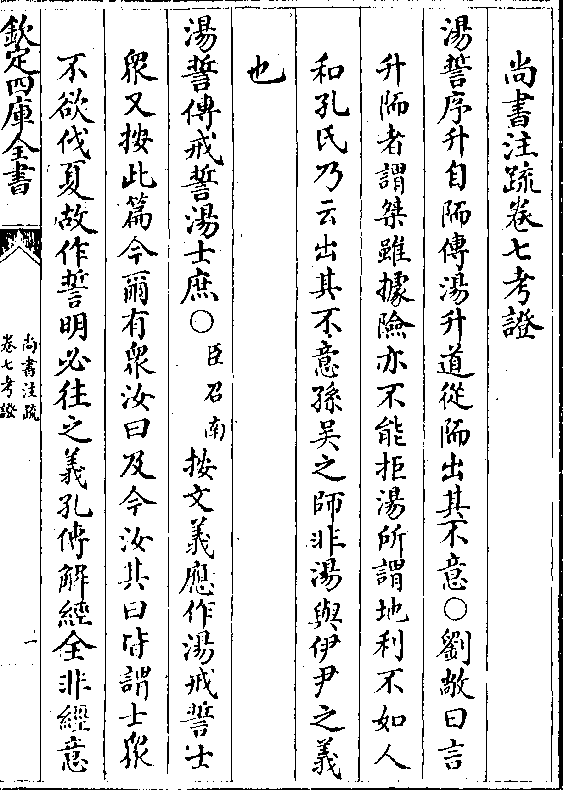 尚書注疏卷七考證
湯誓序升自陑傳湯升道從陑出其不意○劉敞曰言
升陑者謂桀雖據險亦不能拒湯所謂地利不如人
和孔氏乃云出其不意孫吳之師非湯與伊尹之義
也
湯誓傳戒誓湯士庶○臣召南按文義應作湯戒誓士
衆又按此篇今爾有衆汝曰及今汝其曰皆謂士衆
不欲伐夏故作誓明必往之義孔傳解經全非經意
欽定四庫全書
尚書注疏
卷七考證
一